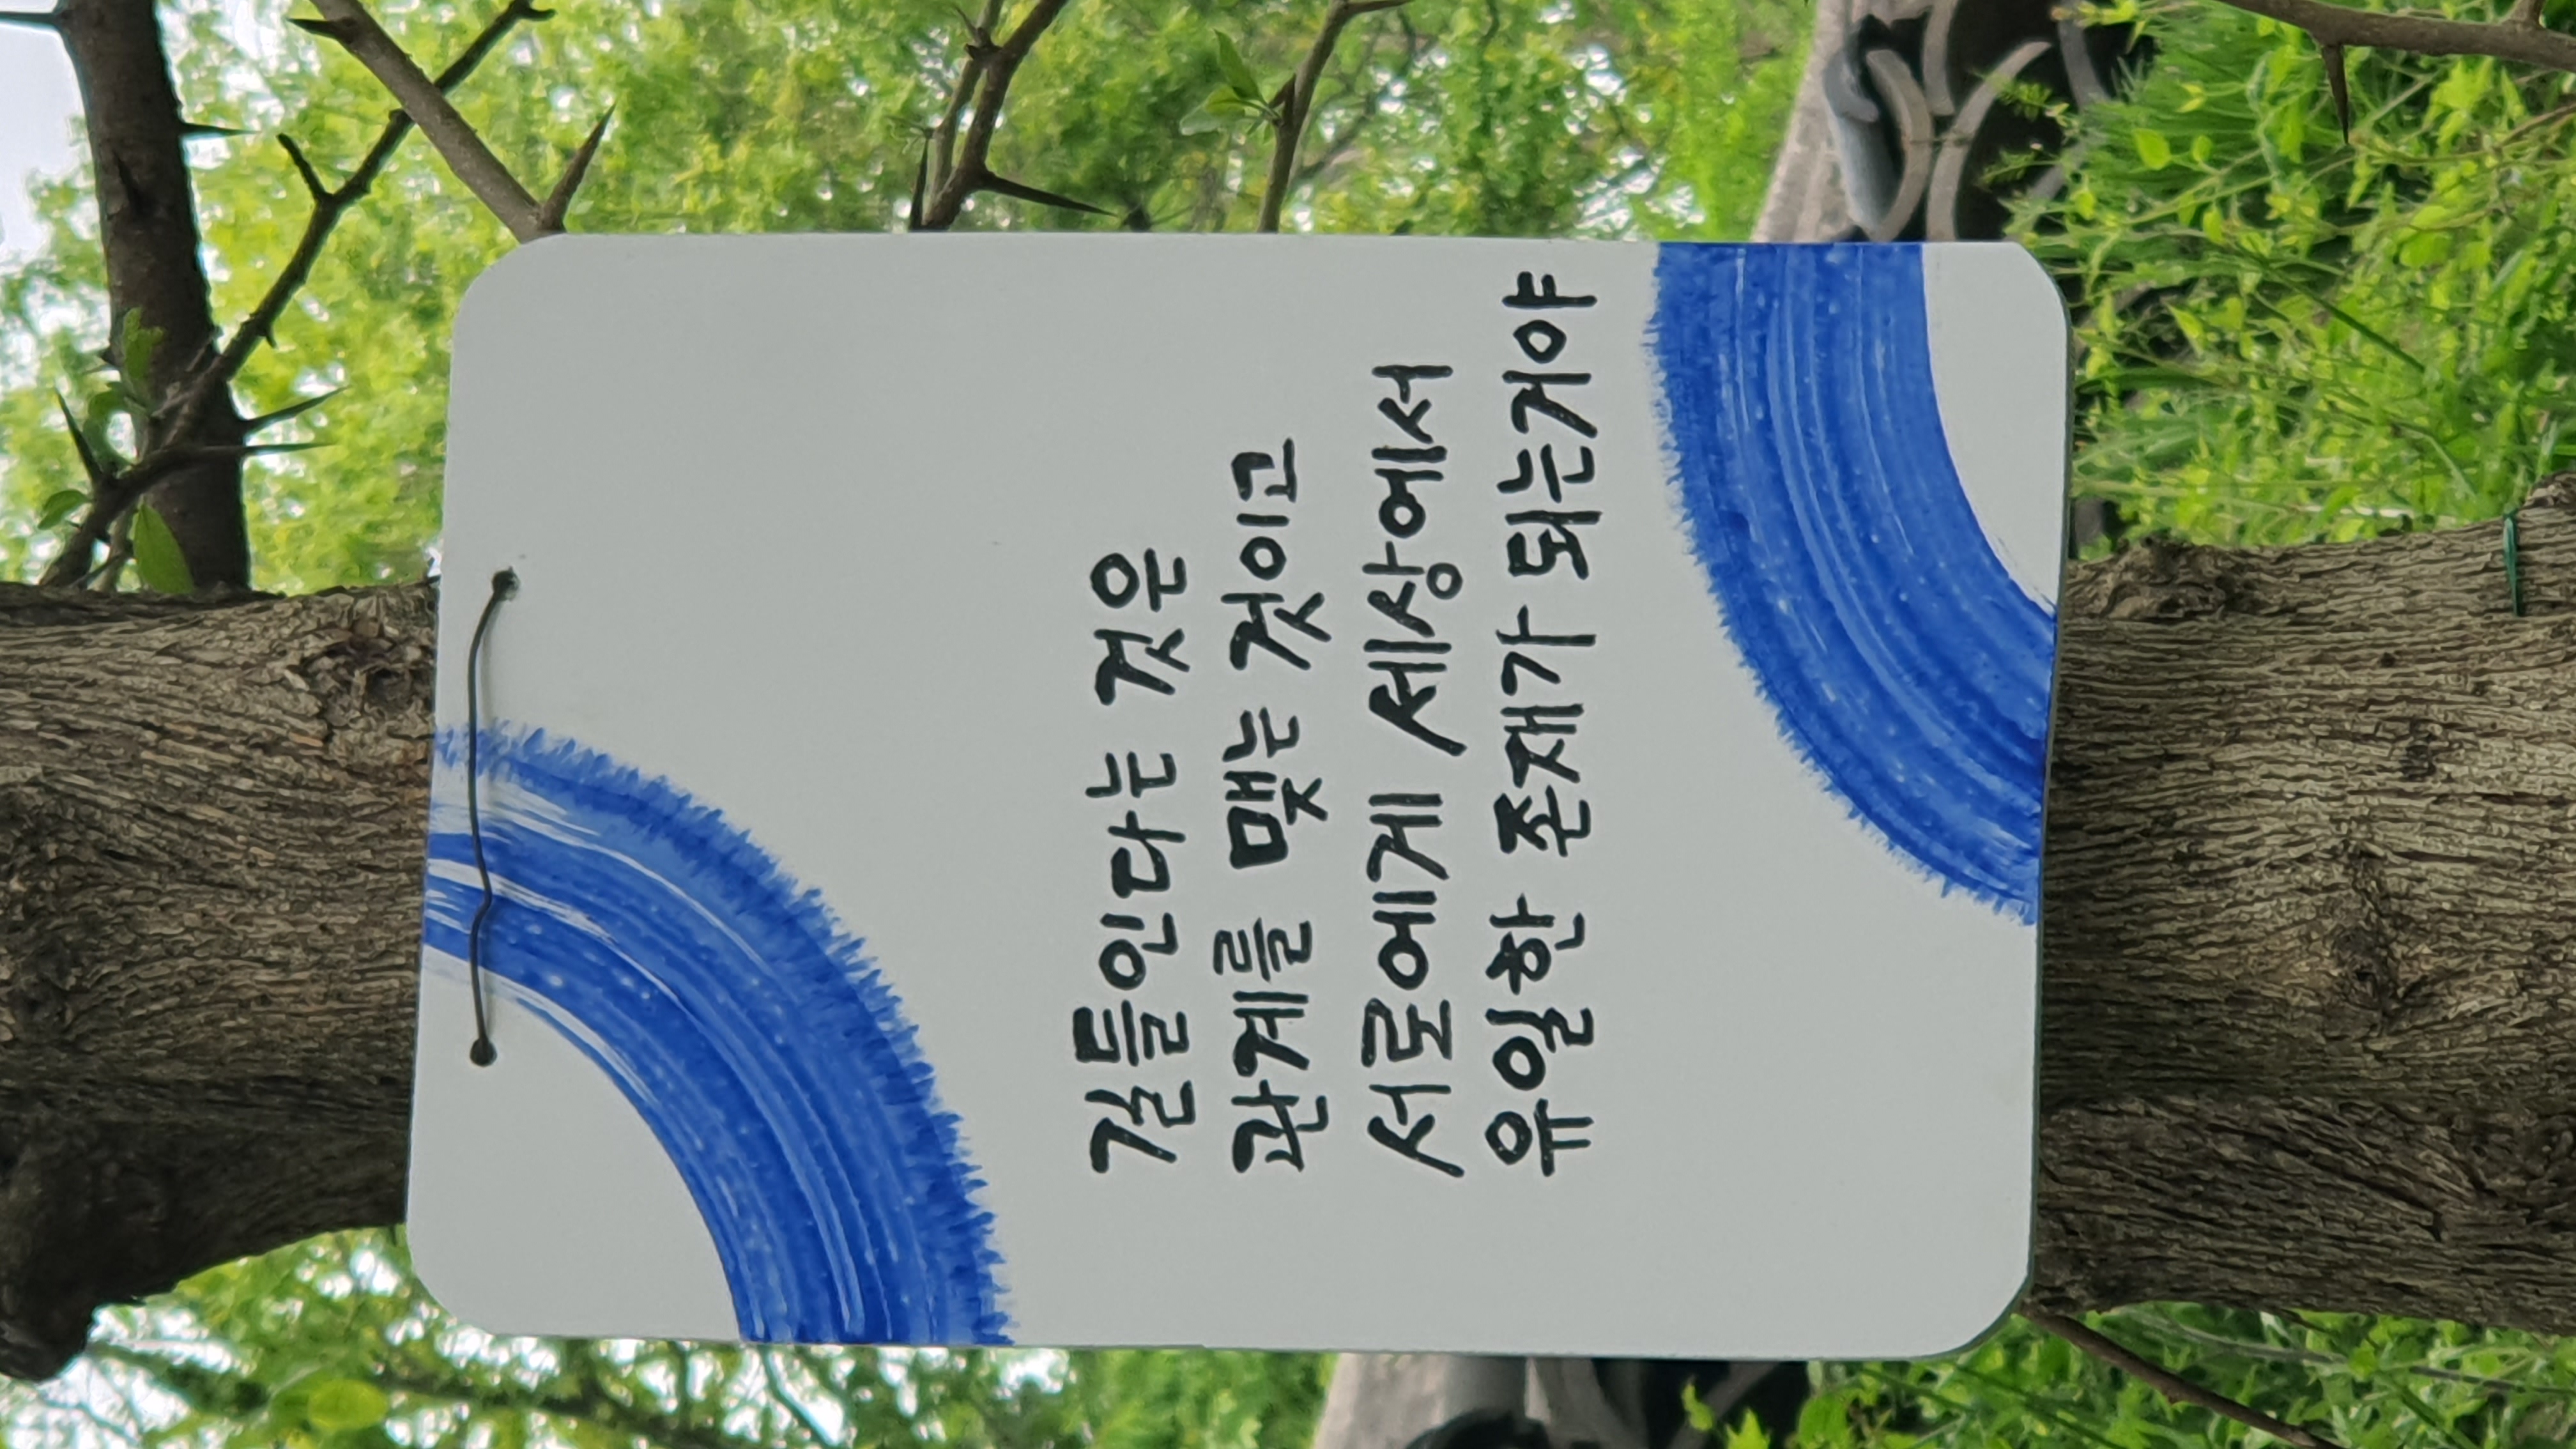 길들인다는 것은
관계를 맺는 것이고
서로에게 세상에서
유일한 존재가 되는거야